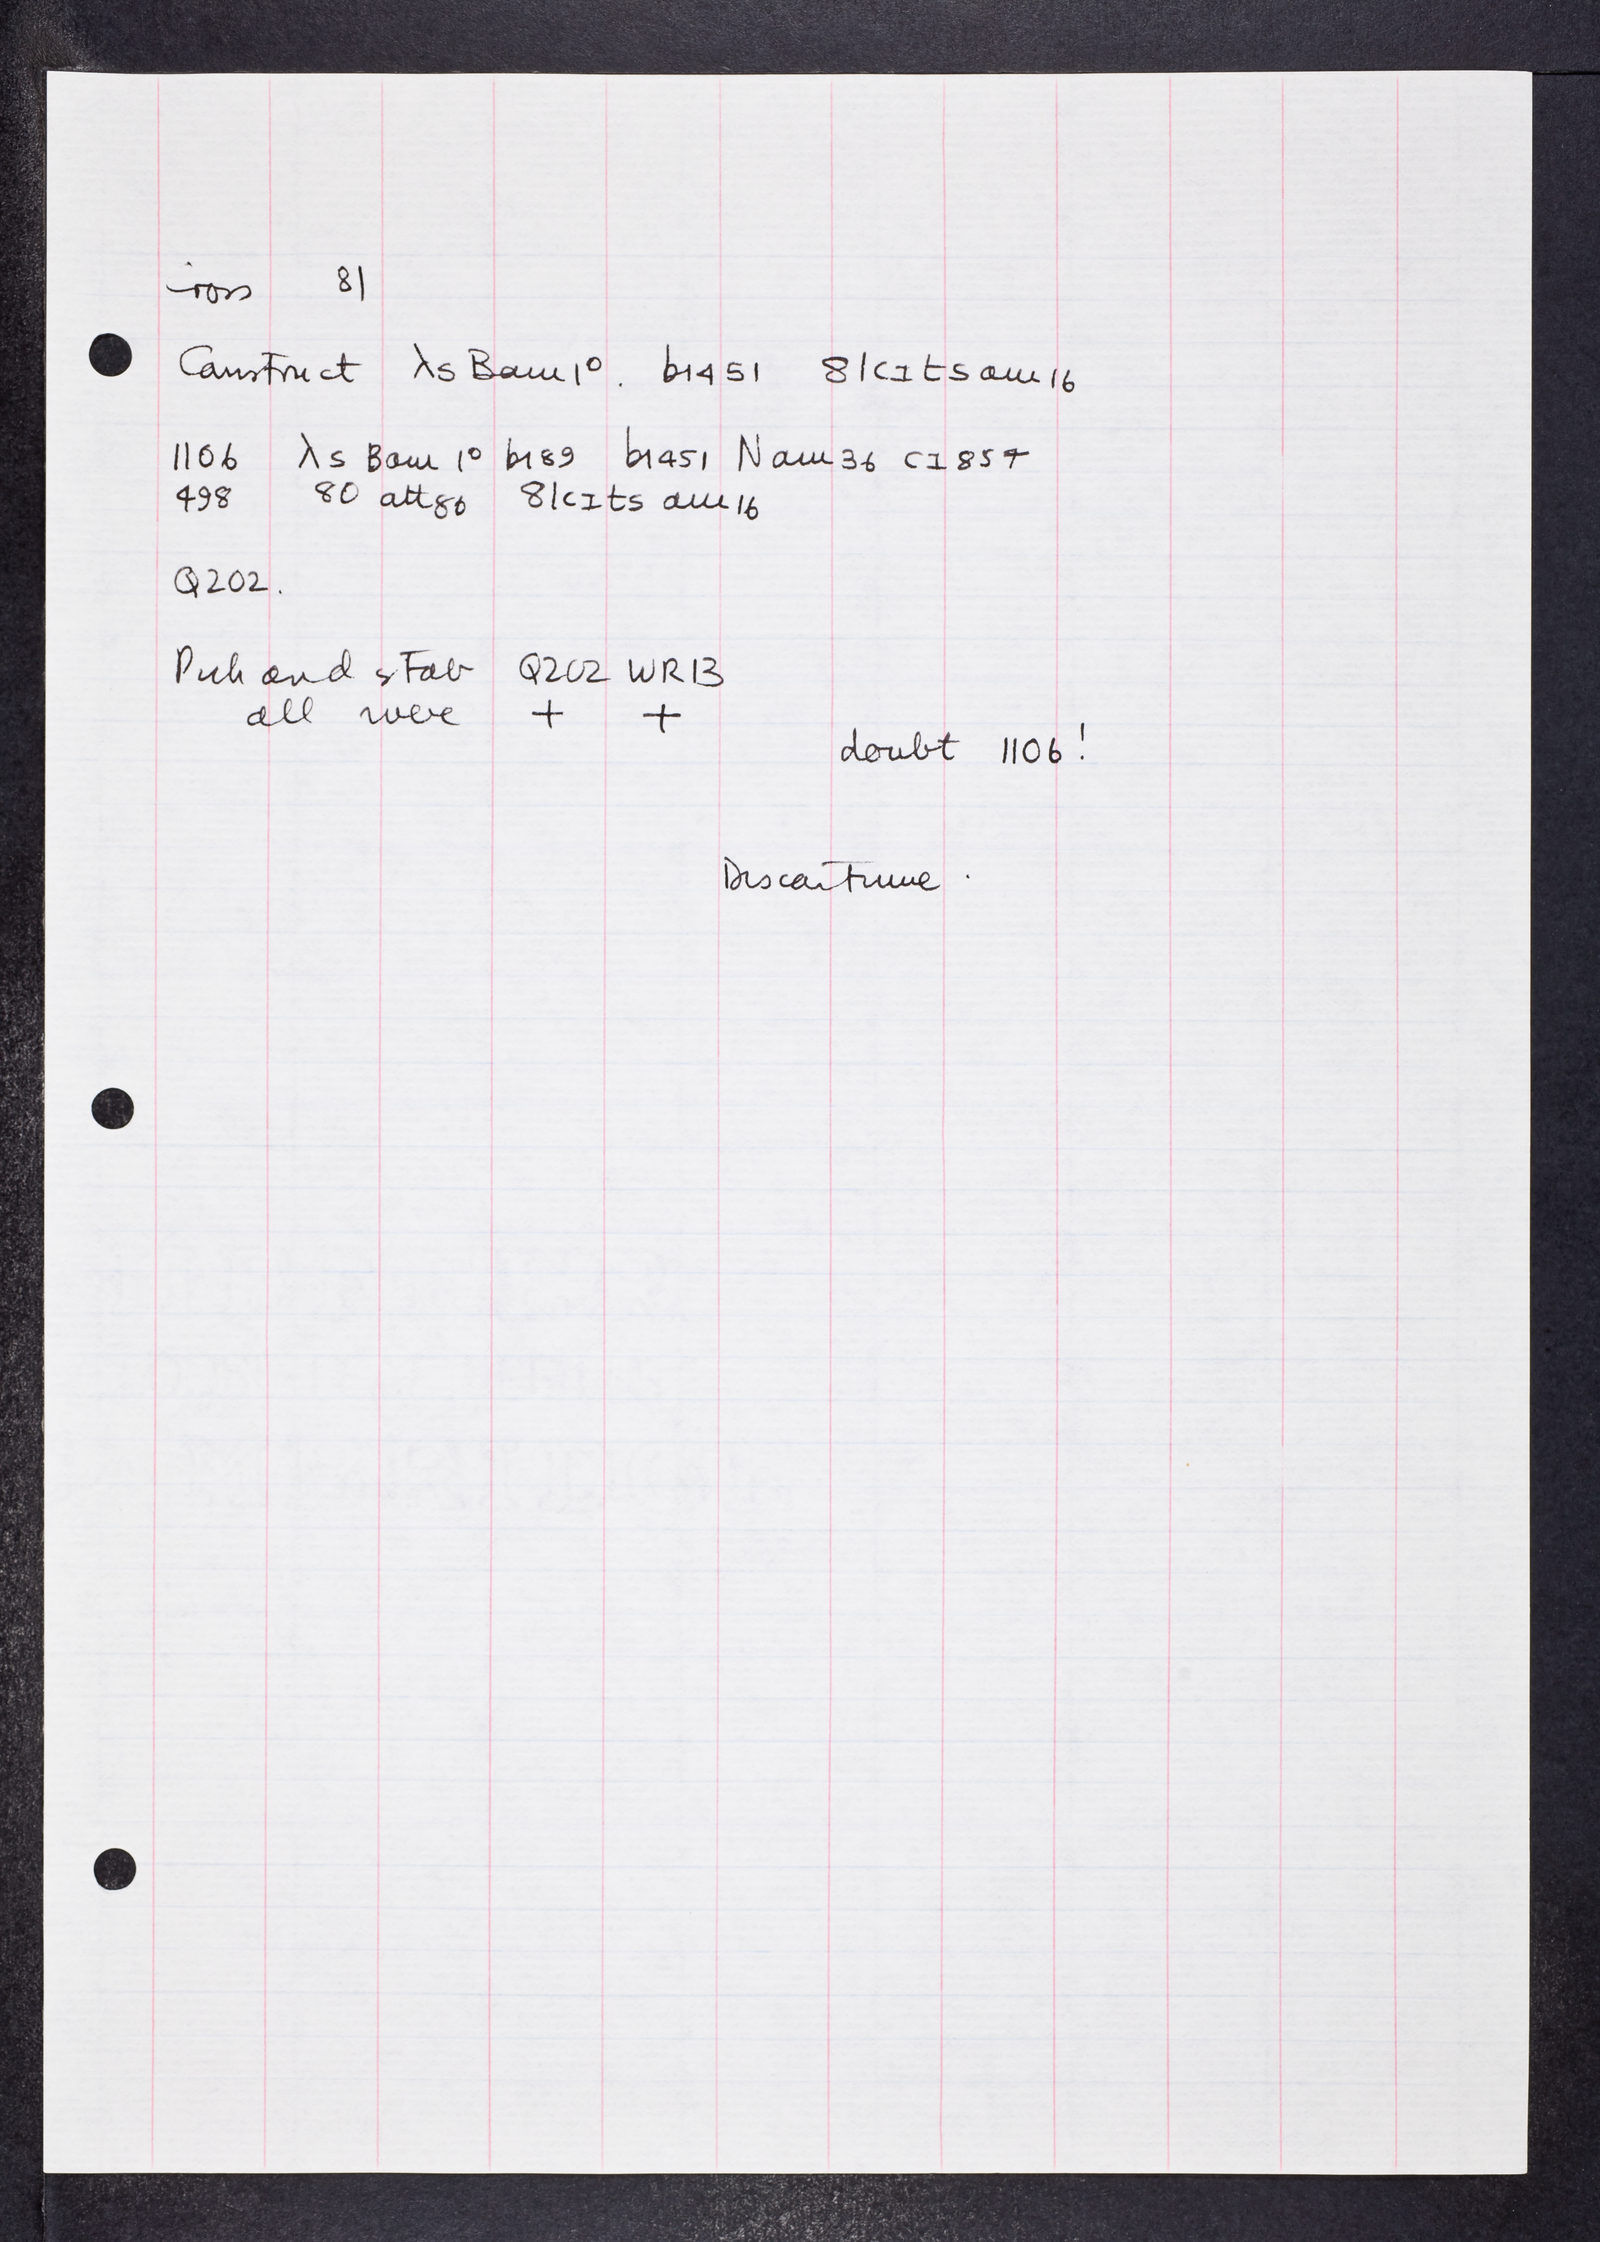 cross 81
Construct λs Bam 1°. b1451 81cIts am16
1106 λs Bam 1° b189 b1451 Nam36 cI857
498 80 att80 81cIts am16
Q202.
Pick and stab Q202 WR13
all were + +
doubt 1106!
Discontinue.